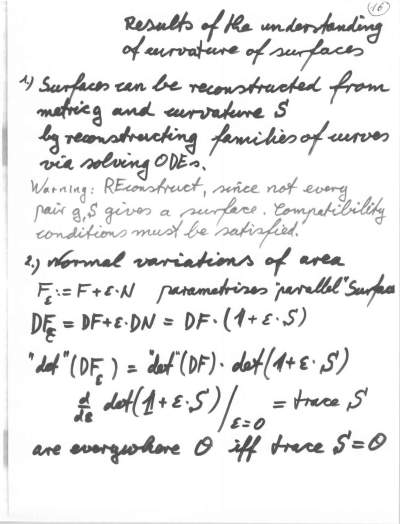 16
Results of the understanding
of curvature of surfaces
1.) Surfaces can be reconstructed from
metric g and curvature S
by reconstructing families of curves
via solving ODEs.
Warning: REconstruct, since not every
pair g, S gives a surface. Compatibility
conditions must be satisfied.
2.) Normal variations of area
F_ε := F + ε·N parametrises "parallel" Surface
DF_ε = DF + ε·DN = DF·(1 + ε·S)
"det"(DF_ε) = "det"(DF)·det(1 + ε·S)
d/dε det(1 + ε·S)/_ε=0 = trace S
are everywhere 0 iff trace S = 0